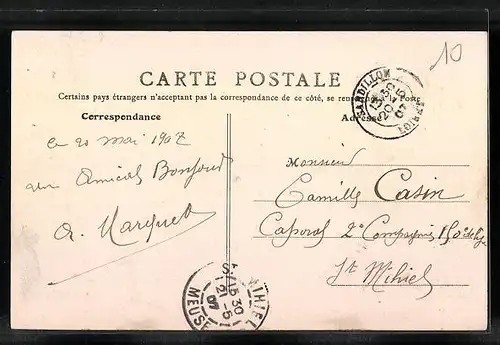 10
CARTE POSTALE
Certains pays étrangers n'acceptent pas la correspondance de ce côté, se Poste
Correspondance
Adresse
15 30
20 -5
07
ce 20 mai 1907
un Amical Bonjour
A. Marquet
Monsieur
Camille Casin
Caporal 2e Compagnie 150e de ligne
St Mihiel
MIHIEL
15 30
21 -5
07
MEUSE